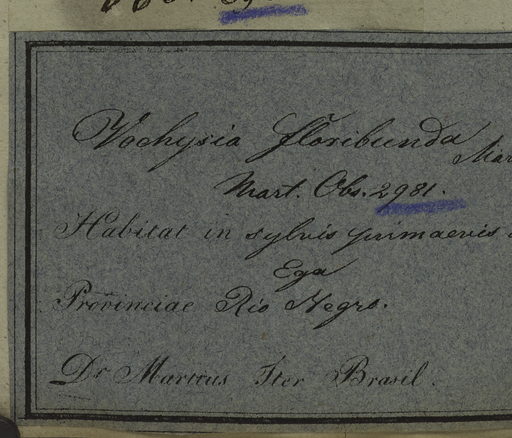 Vochysia floribunda Mar
Mart. Obs. 2981.
Habitat in sylvis primaevis
Ega
Provinciae Rio Negro.
Dr Martius Iter Brasil.